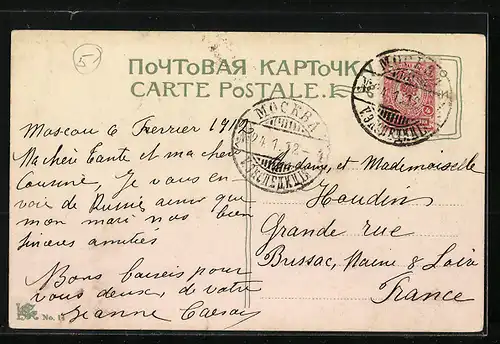 5
ПОЧТОВАЯ КАРТОЧКА
CARTE POSTALE.
МОСКВА
МОСКВА
Moscou 6 Fevrier 1912
Ma chère Tante et ma chere
Cousine, Je vous en
voie de Russie ainsi que
mon mari nos bien
sinceres amitiés
Bons baisers pour
vous deux, de votre
Jeanne
Madame et Mademoiselle
Houdin
Grande rue
Brissac, Maine & Loire
France
No. 11